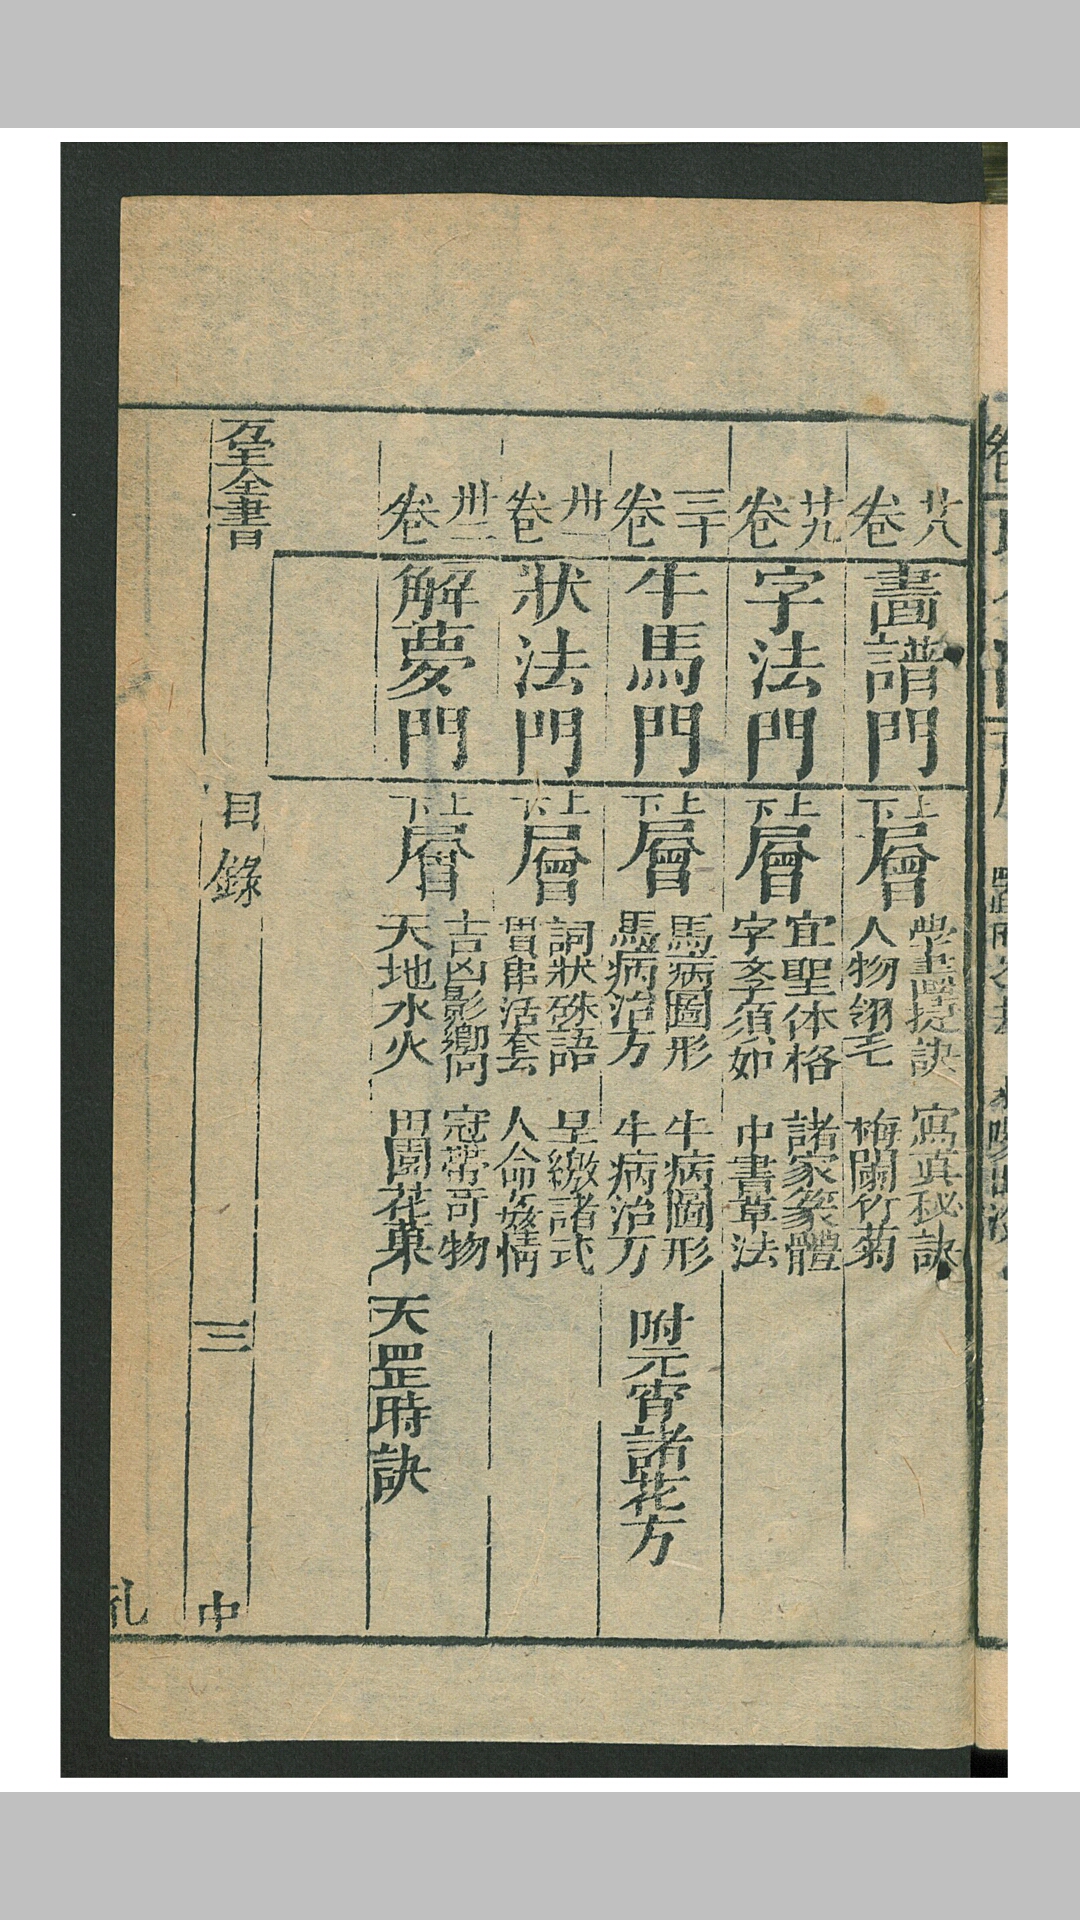 廿八卷
畫譜門
上下層
學畫捷訣 寫真秘訣
人物翎毛 梅蘭竹菊
廿九卷
字法門
上下層
宜聖体格 諸家篆體
字孝須如 中書草法
三十卷
牛馬門
上下層
馬病圖形 牛病圖形
馬病治方 牛病治方
附元宵諸花方
卅一卷
狀法門
上下層
詞狀硃語 呈繳諸式
貫串活套 人命姦情
卅二卷
解夢門
上下層
吉凶影嚮 冠帶哥物
天地水火 田園花菓
天罡時訣
万宝全書
目錄
三
中